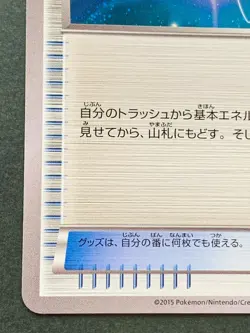 自分のトラッシュから基本エネル
見せてから、山札にもどす。そし
グッズは、自分の番に何枚でも使える。
©2015 Pokémon/Nintendo/Cre